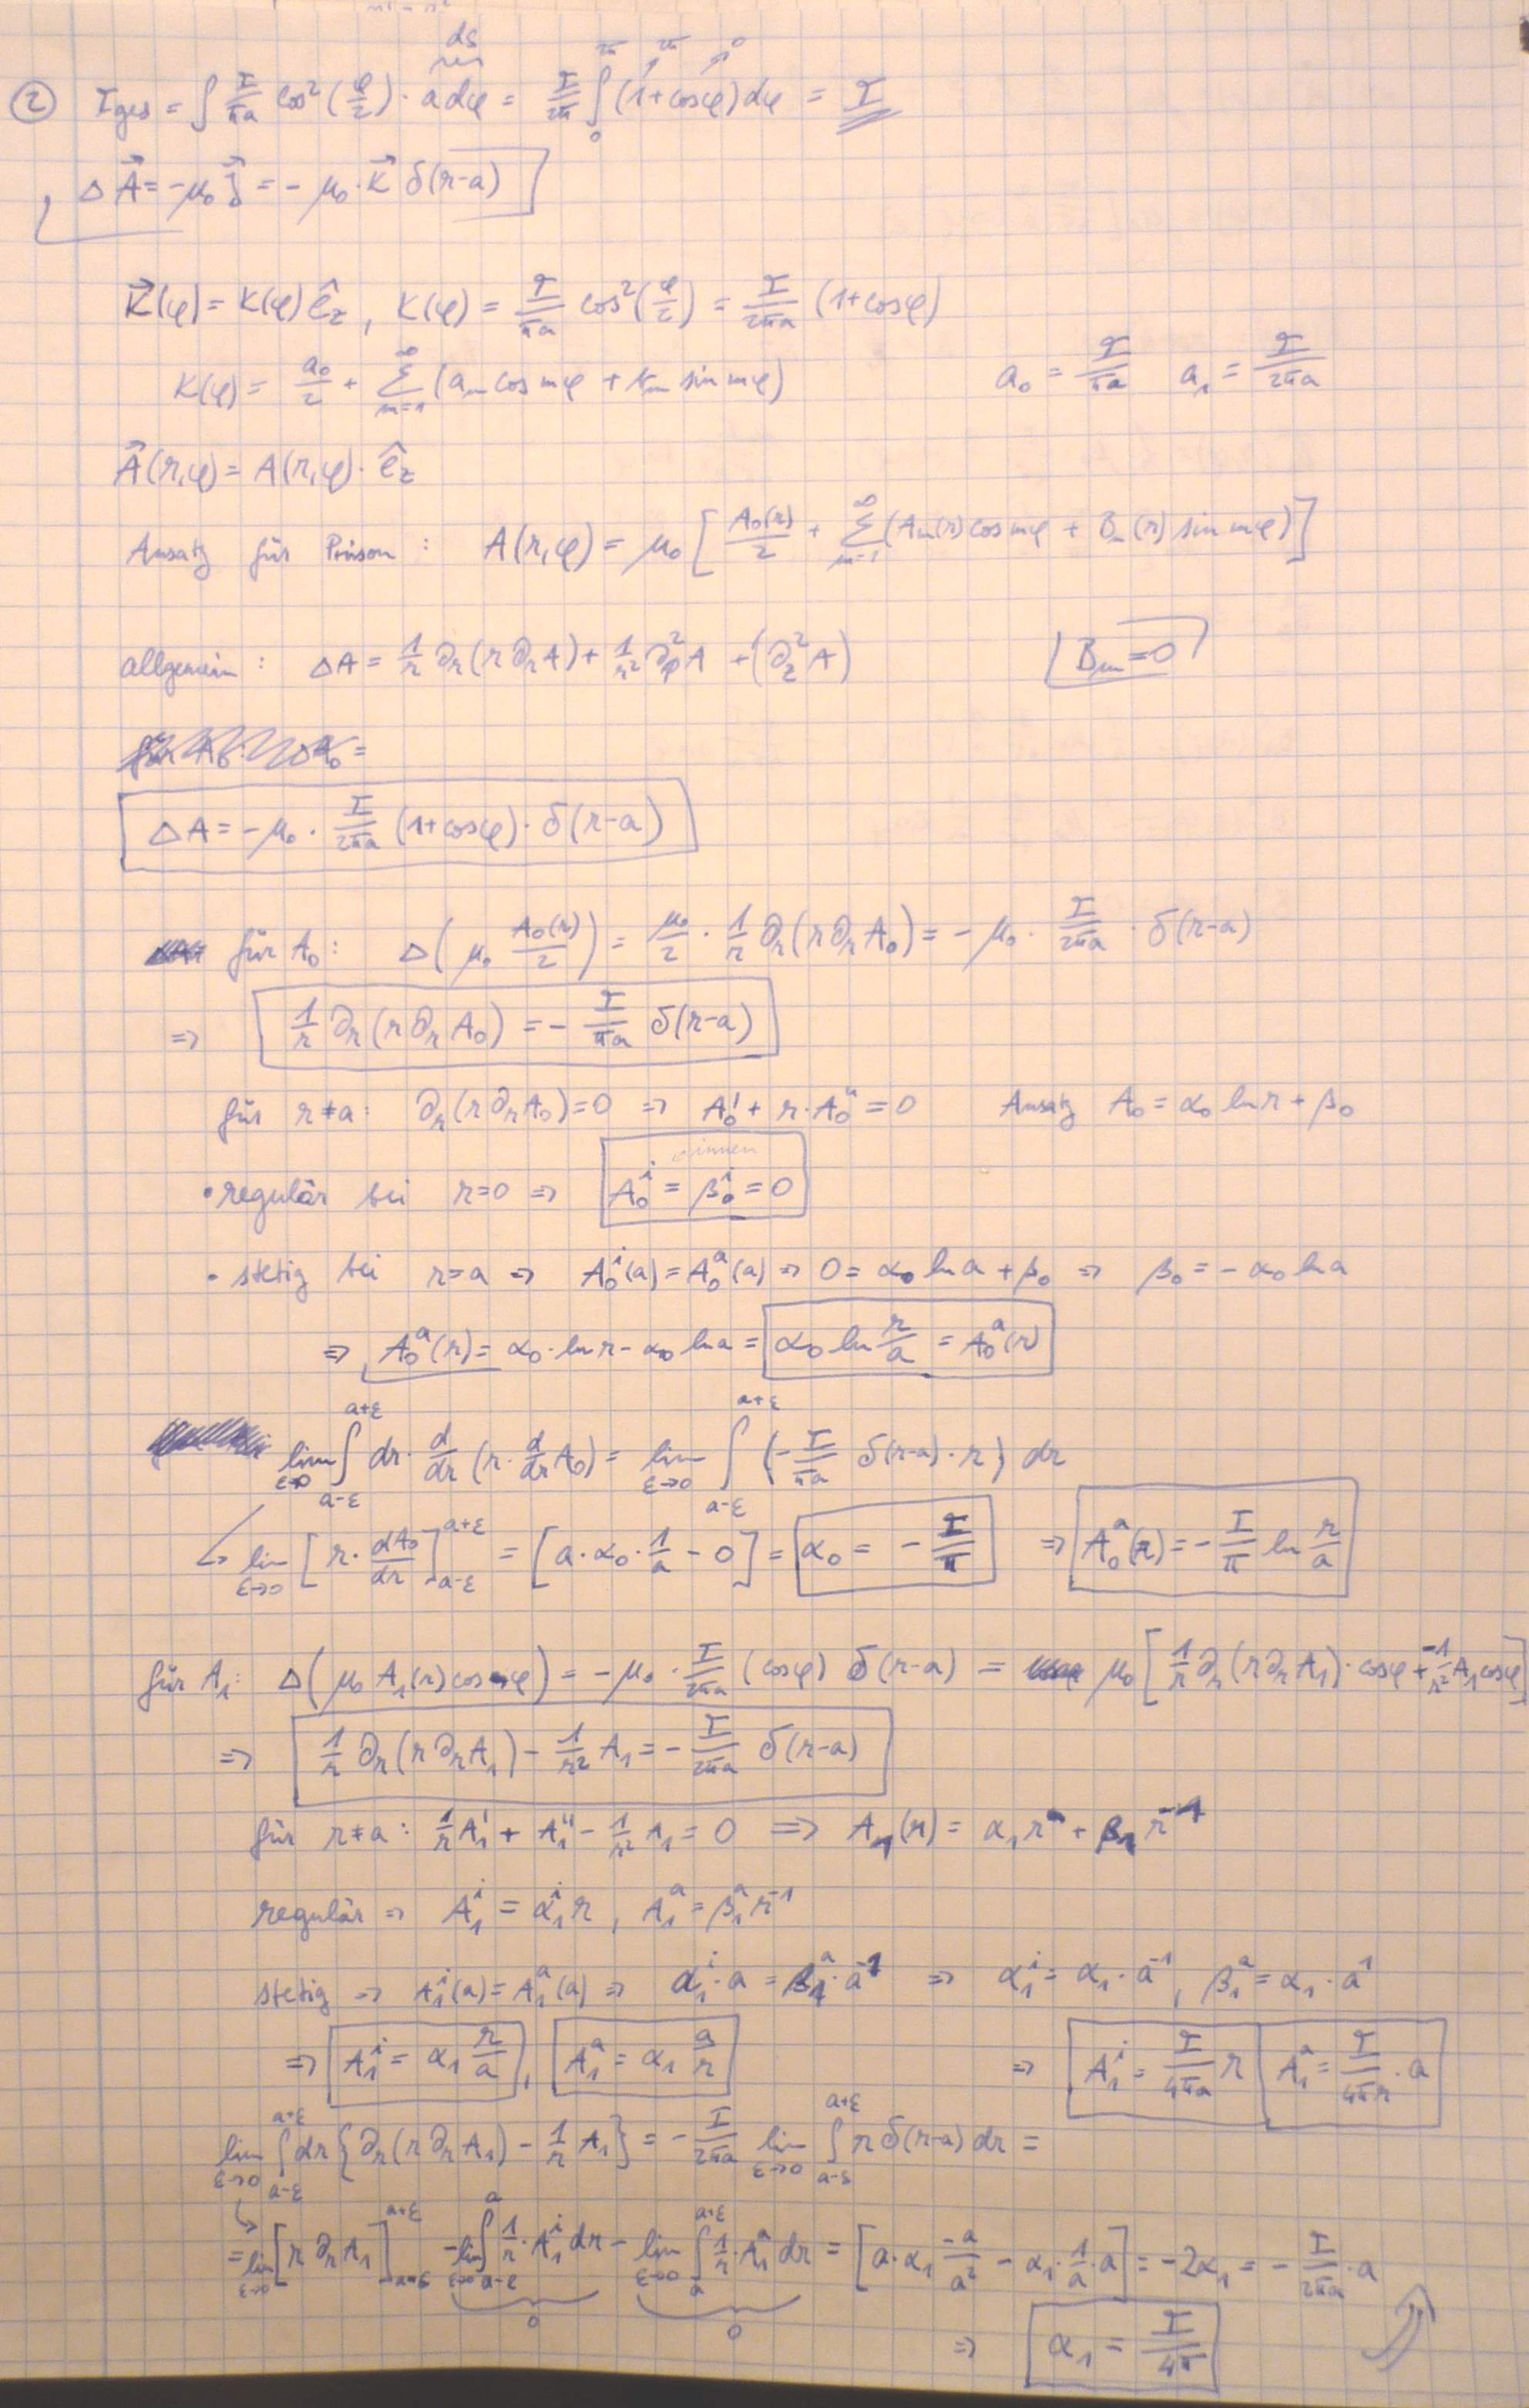 ② I_ges = ∫ I/(πa) cos²(φ/2) · a dφ = I/(2π) ∫₀^{2π} (1+cosφ) dφ = I
ds
2π 2π 0
ΔA⃗ = -μ₀ j⃗ = - μ₀ · K⃗ δ(r-a)
K⃗(φ) = K(φ) ê_z , K(φ) = I/(πa) cos²(φ/2) = I/(2πa) (1+cosφ)
K(φ) = a₀/2 + Σ_{m=1}^∞ (a_m cos mφ + b_m sin mφ) a₀ = I/(πa) a₁ = I/(2πa)
A⃗(r,φ) = A(r,φ) · ê_z
Ansatz für Poisson : A(r,φ) = μ₀ [ A₀(r)/2 + Σ_{m=1}^∞ (A_m(r) cos mφ + B_m(r) sin mφ) ]
allgemein : ΔA = 1/r ∂_r (r ∂_r A) + 1/r² ∂_φ² A + (∂_z² A) B_m = 0
ΔA = -μ₀ · I/(2πa) (1+cosφ) · δ(r-a)
für A₀ : Δ(μ₀ A₀(r)/2) = μ₀/2 · 1/r ∂_r (r ∂_r A₀) = - μ₀ · I/(2πa) · δ(r-a)
⇒ 1/r ∂_r (r ∂_r A₀) = - I/(πa) δ(r-a)
für r≠a : ∂_r (r ∂_r A₀) = 0 ⇒ A₀' + r · A₀'' = 0 Ansatz A₀ = α₀ ln r + β₀
innen
• regulär bei r=0 ⇒ A₀^i = β₀^i = 0
• stetig bei r=a ⇒ A₀^i(a) = A₀^a(a) ⇒ 0 = α₀ ln a + β₀ ⇒ β₀ = - α₀ ln a
⇒ A₀^a(r) = α₀ · ln r - α₀ ln a = α₀ ln r/a = A₀^a(r)
lim_{ε→0} ∫_{a-ε}^{a+ε} dr · d/dr (r · d/dr A₀) = lim_{ε→0} ∫_{a-ε}^{a+ε} (- I/(πa) δ(r-a) · r) dr
↳ lim_{ε→0} [r · dA₀/dr]_{a-ε}^{a+ε} = [a · α₀ · 1/a - 0] = α₀ = - I/π ⇒ A₀^a(r) = - I/π ln r/a
für A₁ : Δ(μ₀ A₁(r) cos φ) = -μ₀ · I/(2πa) (cosφ) δ(r-a) = μ₀ [1/r ∂_r (r ∂_r A₁) · cosφ + -1/r² A₁ cosφ]
⇒ 1/r ∂_r (r ∂_r A₁) - 1/r² A₁ = - I/(2πa) δ(r-a)
für r≠a : 1/r A₁' + A₁'' - 1/r² A₁ = 0 ⇒ A₁(r) = α₁ r + β₁ r^{-1}
regulär ⇒ A₁^i = α₁^i r , A₁^a = β₁^a r^{-1}
stetig ⇒ A₁^i(a) = A₁^a(a) ⇒ α₁^i · a = β₁^a · a^{-1} ⇒ α₁^i = α₁ · a^{-1} , β₁^a = α₁ · a^1
⇒ A₁^i = α₁ r/a , A₁^a = α₁ a/r ⇒ A₁^i = I/(4πa) r A₁^a = I/(4πr) · a
lim_{ε→0} ∫_{a-ε}^{a+ε} dr {∂_r (r ∂_r A₁) - 1/r A₁} = - I/(2πa) lim_{ε→0} ∫_{a-ε}^{a+ε} r δ(r-a) dr =
↳ = lim_{ε→0} [r ∂_r A₁]_{a-ε}^{a+ε} - lim_{ε→0} ∫_{a-ε}^{a} 1/r · A₁^i dr - lim_{ε→0} ∫_a^{a+ε} 1/r · A₁^a dr = [a · α₁ -a/a² - α₁ · 1/a · a] = -2α₁ = - I/(2πa) · a
0 0
⇒ α₁ = I/(4π)